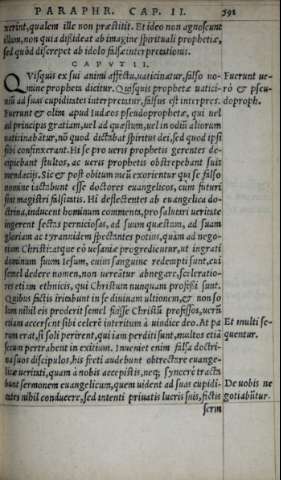 PARAPHR. CAP. II. 591
xerint, qualem ille non præstitit. Et ideo non agnoscunt
illum, non quia dissideat ab imagine spirituali prophetiæ,
sed quòd discrepet ab idolo falsæ interpretationis.
CAPVT II.
QVisquis ex sui animi affectu, uaticinatur, falso no-
mine propheta dicitur. Quisquis prophetæ uatici-
niũ ad suas cupiditates interpretatur, falsus est interpres.
Fuerunt & olim apud Iudæos pseudoprophetæ, qui uel
ad principis gratiam, uel ad quæstum, uel in odiũ aliorum
uaticinabãtur, nõ quod dictabat spiritus dei, sed quod ipsi
sibi confinxerant. Hi se pro ueris prophetis gerentes de-
cipiebant stultos, ac ueris prophetis obstrepebant suis
mendacijs. Sic & post obitum meũ exorientur qui se falso
nomine iactabunt esse doctores euangelicos, cum futuri
sint magistri falsitatis. Hi deflectentes ab euangelica do-
ctrina, inducent hominum commenta, pro salutari ueritate
ingerent sectas perniciosas, ad suum quæstum, ad suam
gloriam ac tyrannidem spectantes potius, quàm ad nego-
tium Christi: atque eò uesaniæ progredientur, ut ingrati
dominum suum Iesum, cuius sanguine redempti sunt, cui
semel dedere nomen, non uereãtur abnegare, sceleratio-
res etiam ethnicis, qui Christum nunquam professi sunt.
Quibus fictis irritabunt in se diuinam ultionem, & non so
lum nihil eis proderit semel fuisse Christũ professos, uerũ
etiam accersent sibi celerẽ interitum à uindice deo. At pa
rum erat, si soli perirent, qui iam perditi sunt, multos etiã
secum pertrahent in exitium. Inueniet enim falsa doctri-
na suos discipulos, his freti audebunt obtrectare euange-
licæ ueritati, quam à nobis accepistis, neq; syncerè tracta
bunt sermonem euangelicum, quem uident ad suas cupidi-
tates nihil conducere, sed intenti priuatis lucris suis, fictis
serm
Fuerunt ue-
rò & pseu-
doproph.
Et multi se-
quentur.
De uobis ne
gotiabũtur.